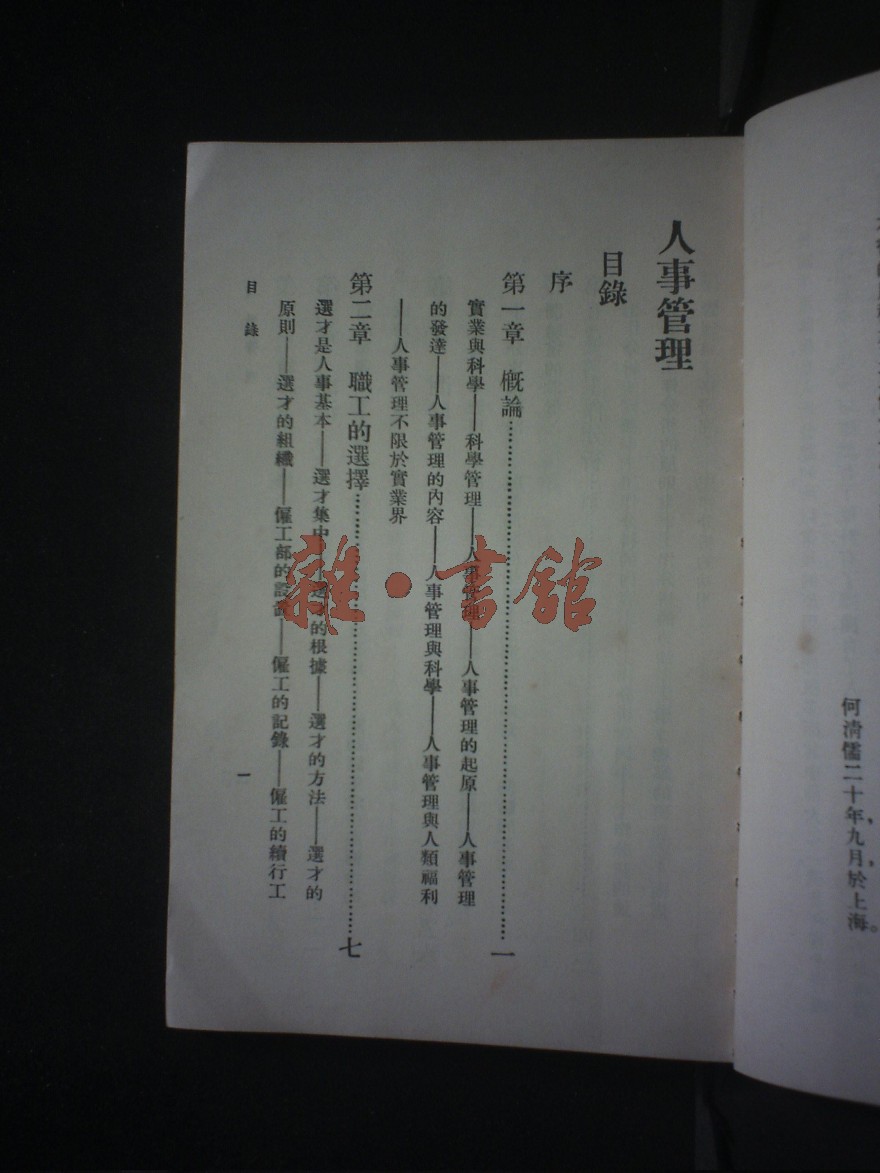 何清儒二十年九月於上海。
人事管理
目錄
序
第一章　概論……一
實業與科學——科學管理——人事管理——人事管理的起原——人事管理
的發達——人事管理的內容——人事管理與科學——人事管理與人類福利
——人事管理不限於實業界
第二章　職工的選擇……七
選才是人事基本——選才集中——選才的根據——選才的方法——選才的
原則——選才的組織——僱工部的設——僱工的記錄——僱工的續行工
目錄
一
雜·書館